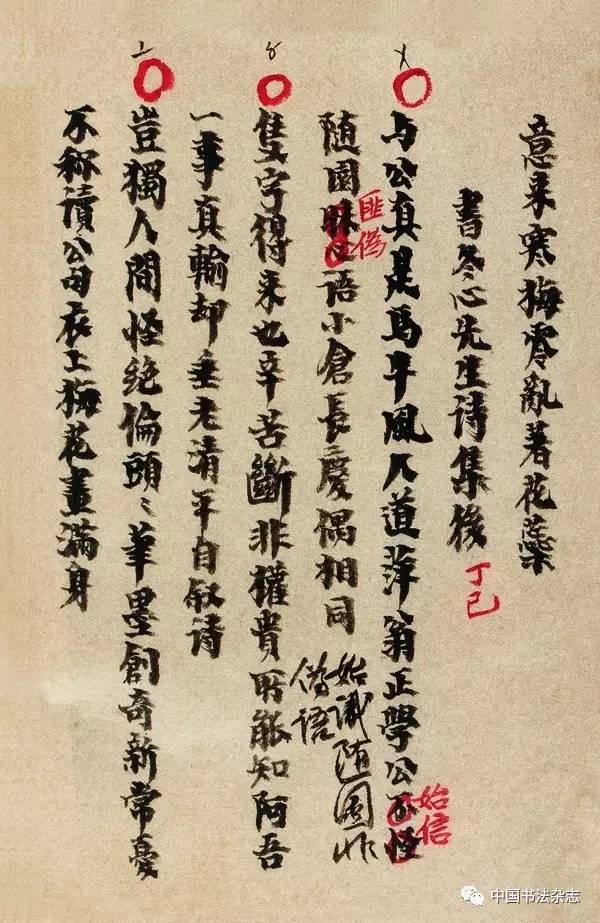 意来寒梅零亂著花蘂
書冬心先生诗集後 丁巳
与公真是馬牛風人道萍翁正學公不怪
始信
随園语小倉長慶偶相同
匪偽
始識随園非
偽语
隻字得来也辛苦斷非權貴所能知阿吾
一事真輸却垂老清平自叙诗
豈獨人間怪绝倫頭〻筆墨創奇新常憂
不称讀公句衣上梅花畫满身
中国书法杂志